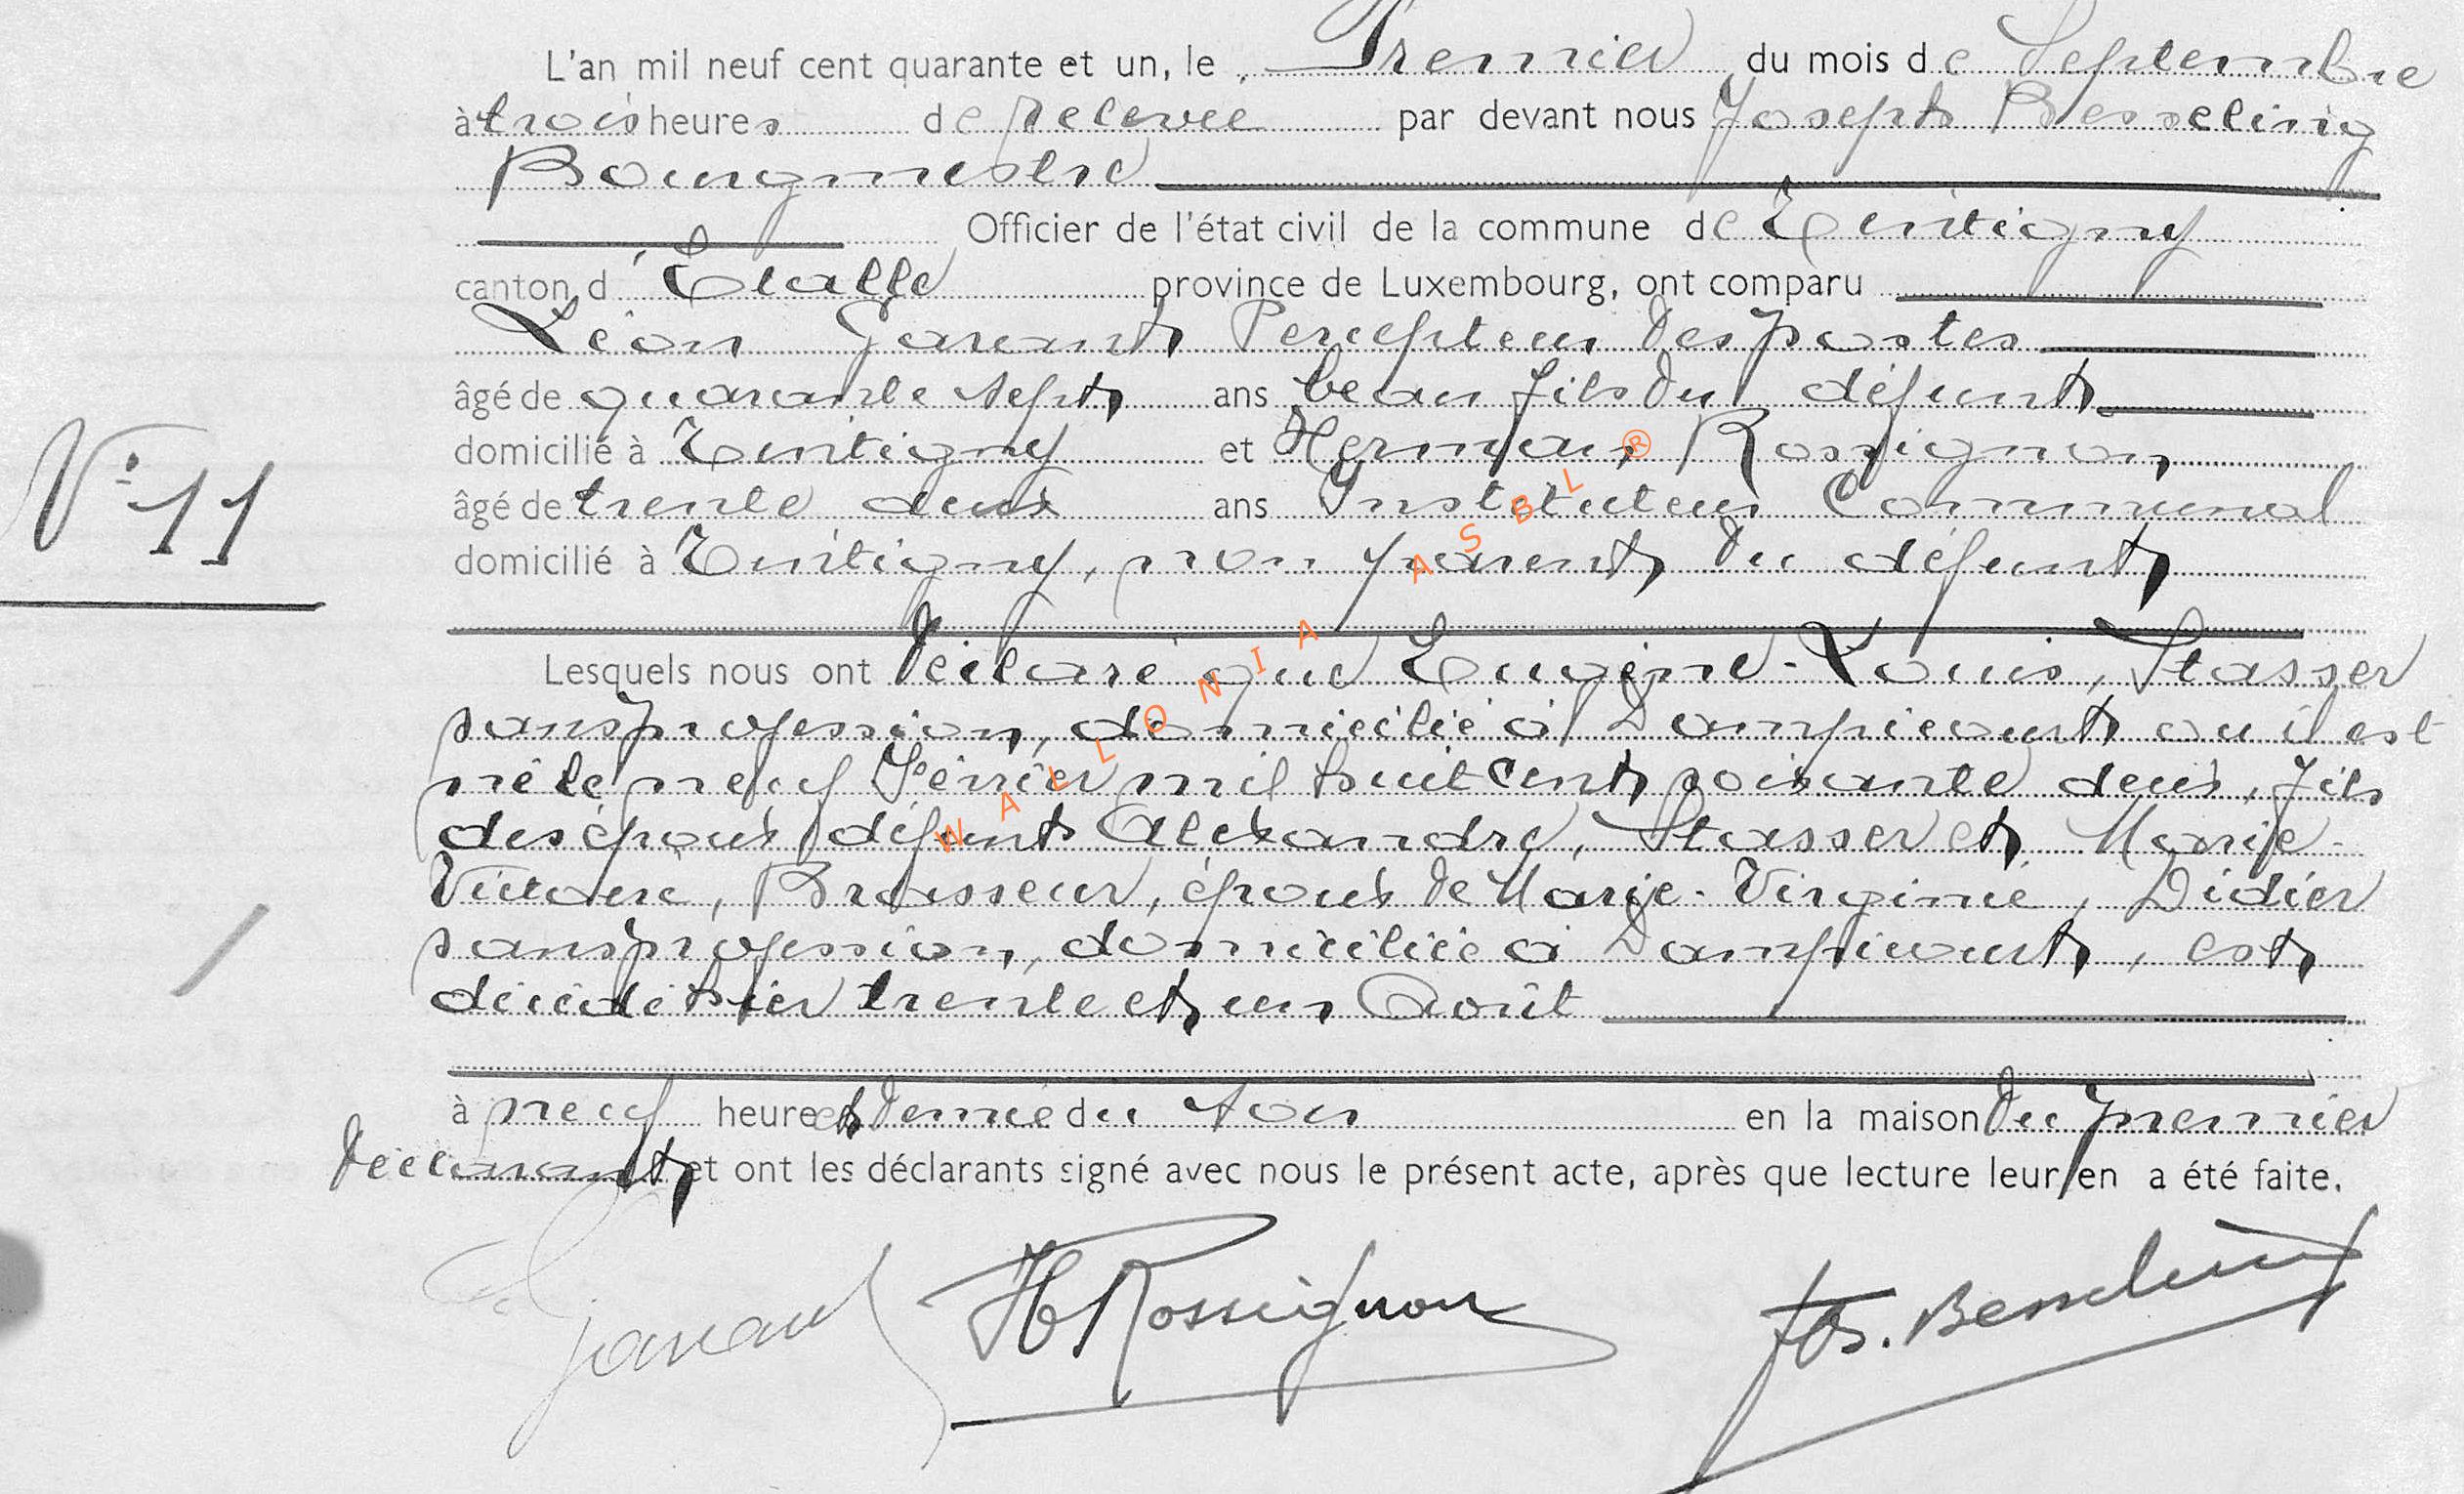 L'an mil neuf cent quarante et un, le Premier du mois de Septembre
à trois heures de relevée par devant nous Joseph Besseling
Bourgmestre
Officier de l'état civil de la commune de Tintigny
canton d'Etalle province de Luxembourg, ont comparu
Léon Garant Percepteur des postes
âgé de quarante sept ans beau fils du défunt
domicilié à Tintigny et Herman Rossignon,
N° 11
âgé de trente deux ans Instituteur Communal
domicilié à Tintigny, non parent du défunt
Lesquels nous ont déclaré que Eugène-Louis, Stasser
sans profession, domicilié à Dampicourt ou il est
né le neuf Février mil huit cent soixante deux, fils
des époux défunts Alexandre, Stasser et Marie-
Victoire, Brasseur, époux de Marie-Virginie, Didier
sans profession, domiciliée à Dampicourt, est
décédé hier trente et un Août
à neuf heure et demie du soir en la maison du premier
déclarant et ont les déclarants signé avec nous le présent acte, après que lecture leur en a été faite.
Garant H Rossignon Jos. Besseling
WALLONIA ASBL ®